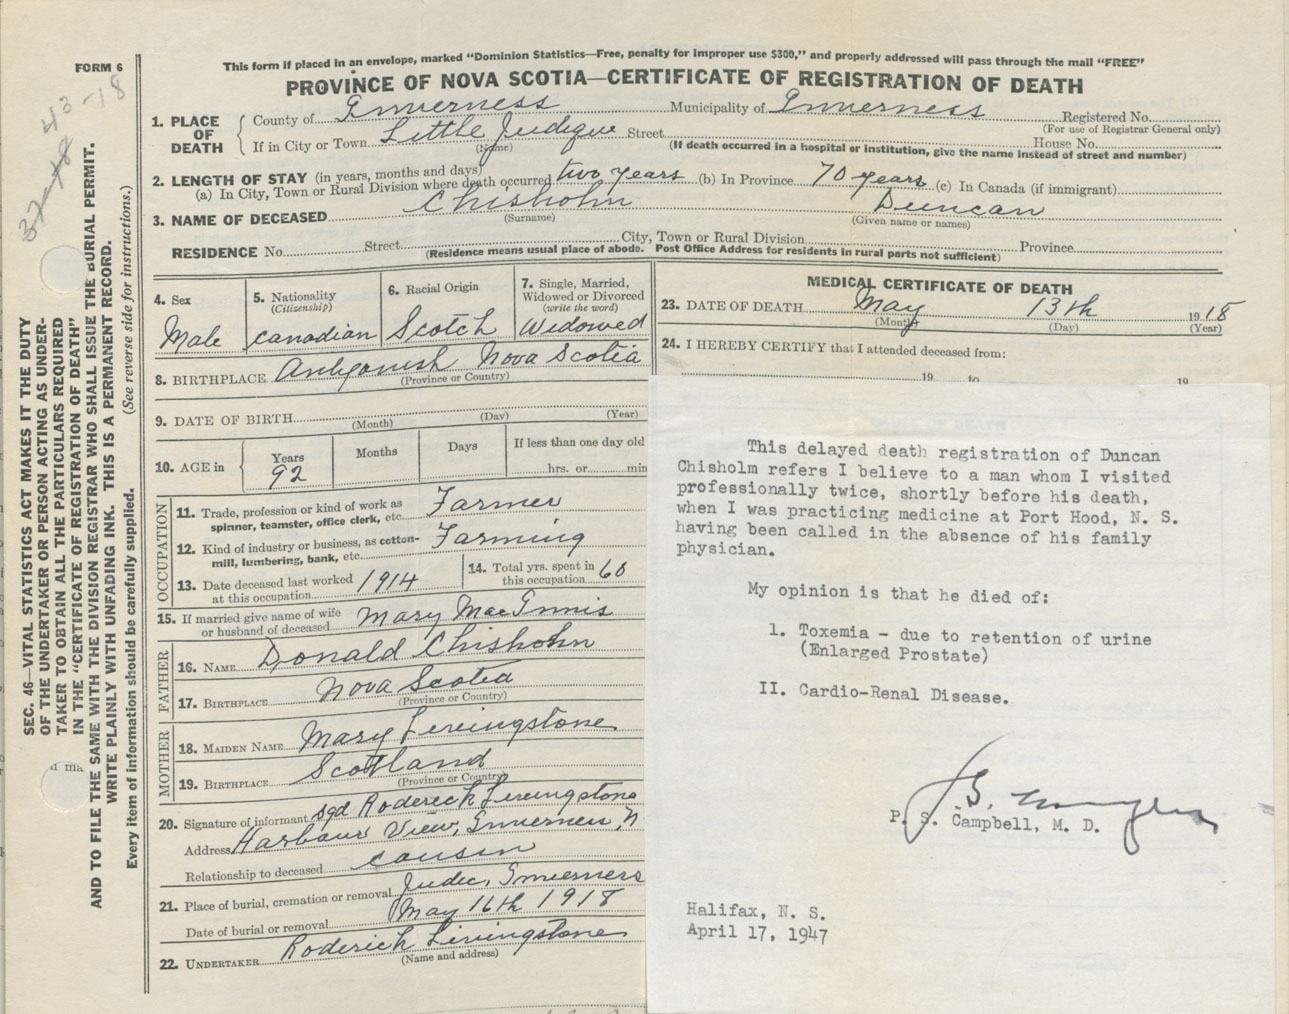 This form if placed in an envelope, marked "Dominion Statistics—Free, penalty for improper use $300," and properly addressed will pass through the mail "FREE"
FORM 6
PROVINCE OF NOVA SCOTIA—CERTIFICATE OF REGISTRATION OF DEATH
43-18
1. PLACE OF DEATH
County of Inverness Municipality of Inverness Registered No.
(For use of Registrar General only)
If in City or Town Little Judique Street House No.
(Name) (If death occurred in a hospital or institution, give the name instead of street and number)
2. LENGTH OF STAY (in years, months and days)
(a) In City, Town or Rural Division where death occurred two years (b) In Province 70 years (c) In Canada (if immigrant)
3. NAME OF DECEASED Chisholm Duncan
(Surname) (Given name or names)
RESIDENCE No. Street City, Town or Rural Division Province
(Residence means usual place of abode. Post Office Address for residents in rural parts not sufficient)
4. Sex
Male
5. Nationality
(Citizenship)
Canadian
6. Racial Origin
Scotch
7. Single, Married,
Widowed or Divorced
(write the word)
Widowed
8. BIRTHPLACE Antigonish Nova Scotia
(Province or Country)
9. DATE OF BIRTH
(Month) (Day) (Year)
10. AGE in
Years Months Days If less than one day old
92 hrs. or min
OCCUPATION
11. Trade, profession or kind of work as Farmer
spinner, teamster, office clerk, etc.
12. Kind of industry or business, as cotton- Farming
mill, lumbering, bank, etc.
13. Date deceased last worked 1914
at this occupation
14. Total yrs. spent in 60
this occupation
15. If married give name of wife Mary MacInnis
or husband of deceased
FATHER
16. NAME Donald Chisholm
17. BIRTHPLACE Nova Scotia
(Province or Country)
MOTHER
18. MAIDEN NAME Mary Livingstone
19. BIRTHPLACE Scotland
(Province or Country)
20. Signature of informant sgd Roderick Livingstone
Address Harbour View, Inverness, N
Relationship to deceased cousin
21. Place of burial, cremation or removal Judic, Inverness
Date of burial or removal May 16th 1918
22. UNDERTAKER Roderick Livingstone
(Name and address)
MEDICAL CERTIFICATE OF DEATH
23. DATE OF DEATH May 13th 1918
(Month) (Day) (Year)
24. I HEREBY CERTIFY that I attended deceased from:
19 to 19
This delayed death registration of Duncan
Chisholm refers I believe to a man whom I visited
professionally twice, shortly before his death,
when I was practicing medicine at Port Hood, N. S.
having been called in the absence of his family
physician.
My opinion is that he died of:
1. Toxemia - due to retention of urine
(Enlarged Prostate)
II. Cardio-Renal Disease.
P. S. Campbell, M. D.
Halifax, N. S.
April 17, 1947
SEC. 46—VITAL STATISTICS ACT MAKES IT THE DUTY
OF THE UNDERTAKER OR PERSON ACTING AS UNDER-
TAKER TO OBTAIN ALL THE PARTICULARS REQUIRED
IN THE "CERTIFICATE OF REGISTRATION OF DEATH"
AND TO FILE THE SAME WITH THE DIVISION REGISTRAR WHO SHALL ISSUE THE BURIAL PERMIT.
WRITE PLAINLY WITH UNFADING INK. THIS IS A PERMANENT RECORD.
Every item of information should be carefully supplied. (See reverse side for instructions.)